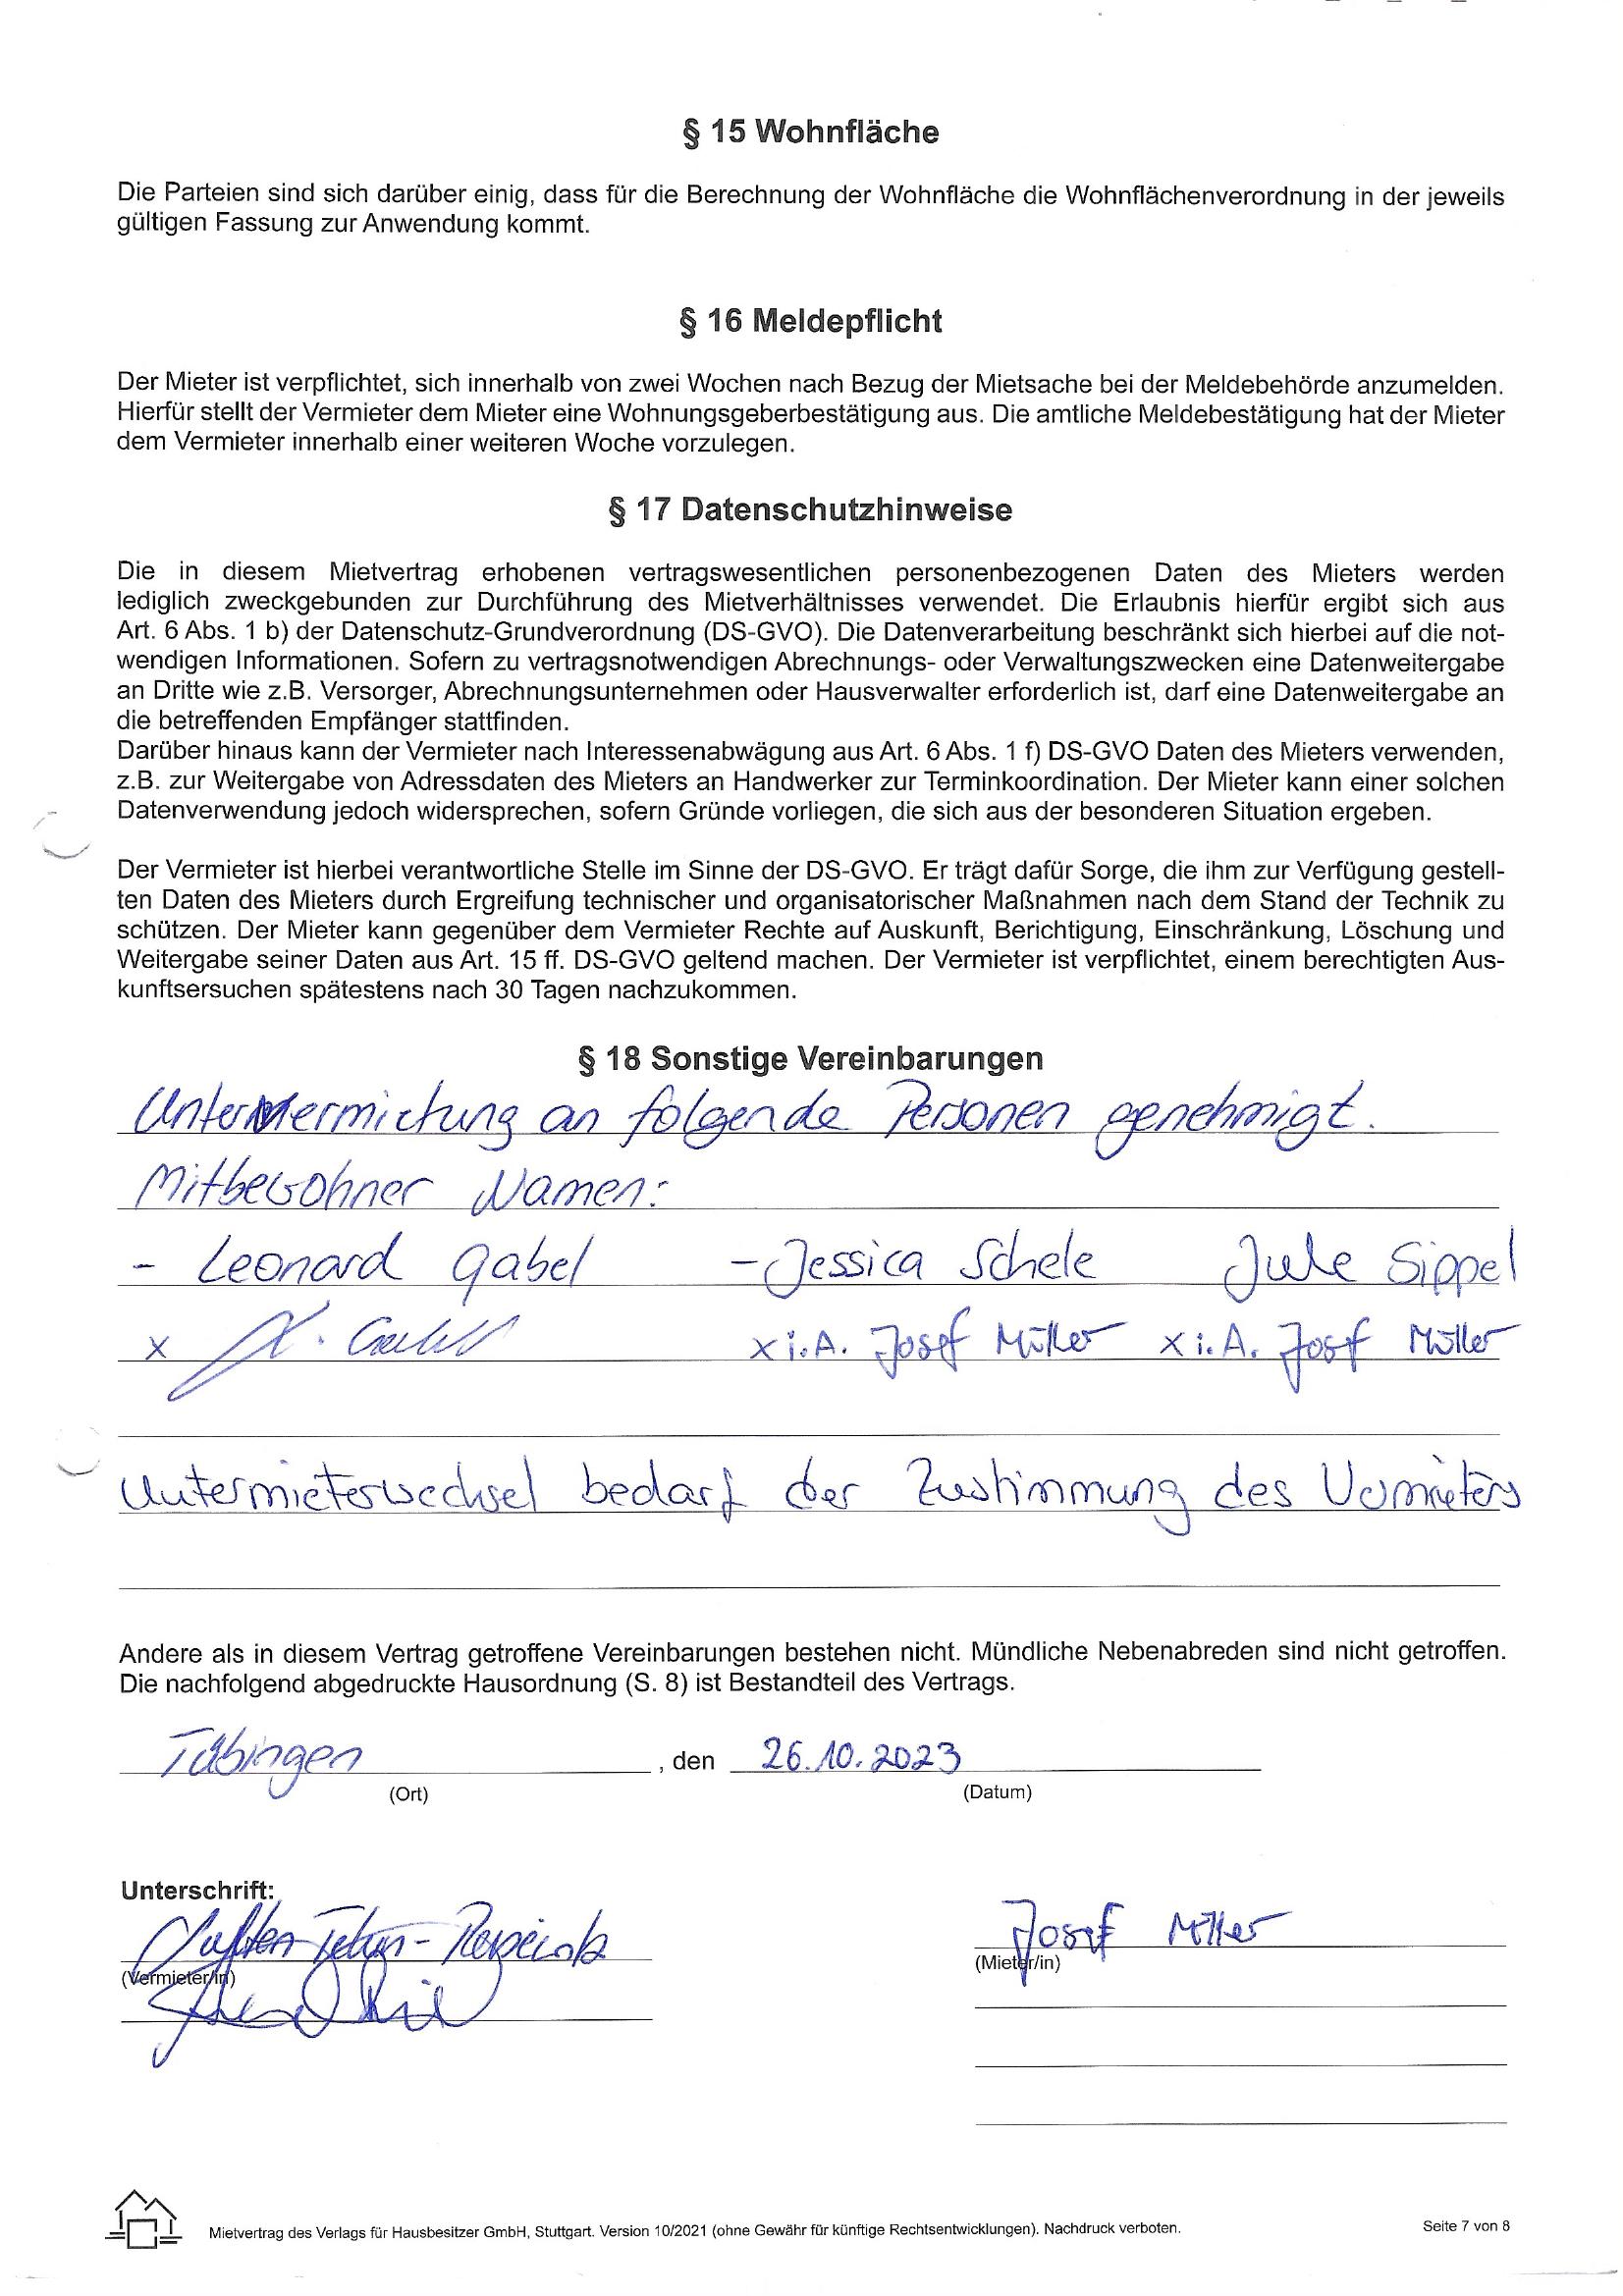 § 15 Wohnfläche
Die Parteien sind sich darüber einig, dass für die Berechnung der Wohnfläche die Wohnflächenverordnung in der jeweils
gültigen Fassung zur Anwendung kommt.
§ 16 Meldepflicht
Der Mieter ist verpflichtet, sich innerhalb von zwei Wochen nach Bezug der Mietsache bei der Meldebehörde anzumelden.
Hierfür stellt der Vermieter dem Mieter eine Wohnungsgeberbestätigung aus. Die amtliche Meldebestätigung hat der Mieter
dem Vermieter innerhalb einer weiteren Woche vorzulegen.
§ 17 Datenschutzhinweise
Die in diesem Mietvertrag erhobenen vertragswesentlichen personenbezogenen Daten des Mieters werden
lediglich zweckgebunden zur Durchführung des Mietverhältnisses verwendet. Die Erlaubnis hierfür ergibt sich aus
Art. 6 Abs. 1 b) der Datenschutz-Grundverordnung (DS-GVO). Die Datenverarbeitung beschränkt sich hierbei auf die not-
wendigen Informationen. Sofern zu vertragsnotwendigen Abrechnungs- oder Verwaltungszwecken eine Datenweitergabe
an Dritte wie z.B. Versorger, Abrechnungsunternehmen oder Hausverwalter erforderlich ist, darf eine Datenweitergabe an
die betreffenden Empfänger stattfinden.
Darüber hinaus kann der Vermieter nach Interessenabwägung aus Art. 6 Abs. 1 f) DS-GVO Daten des Mieters verwenden,
z.B. zur Weitergabe von Adressdaten des Mieters an Handwerker zur Terminkoordination. Der Mieter kann einer solchen
Datenverwendung jedoch widersprechen, sofern Gründe vorliegen, die sich aus der besonderen Situation ergeben.
Der Vermieter ist hierbei verantwortliche Stelle im Sinne der DS-GVO. Er trägt dafür Sorge, die ihm zur Verfügung gestell-
ten Daten des Mieters durch Ergreifung technischer und organisatorischer Maßnahmen nach dem Stand der Technik zu
schützen. Der Mieter kann gegenüber dem Vermieter Rechte auf Auskunft, Berichtigung, Einschränkung, Löschung und
Weitergabe seiner Daten aus Art. 15 ff. DS-GVO geltend machen. Der Vermieter ist verpflichtet, einem berechtigten Aus-
kunftsersuchen spätestens nach 30 Tagen nachzukommen.
§ 18 Sonstige Vereinbarungen
Untervermietung an folgende Personen genehmigt.
Mitbewohner Namen:
- Leonard Gabel - Jessica Schele Jule Sippel
x x i.A. Josef Müller x i.A. Josef Müller
Untermieterwechsel bedarf der Zustimmung des Vermieters
Andere als in diesem Vertrag getroffene Vereinbarungen bestehen nicht. Mündliche Nebenabreden sind nicht getroffen.
Die nachfolgend abgedruckte Hausordnung (S. 8) ist Bestandteil des Vertrags.
Tübingen , den 26.10.2023
(Ort) (Datum)
Unterschrift:
Josef Müller
(Vermieter/in) (Mieter/in)
Mietvertrag des Verlags für Hausbesitzer GmbH, Stuttgart. Version 10/2021 (ohne Gewähr für künftige Rechtsentwicklungen). Nachdruck verboten. Seite 7 von 8